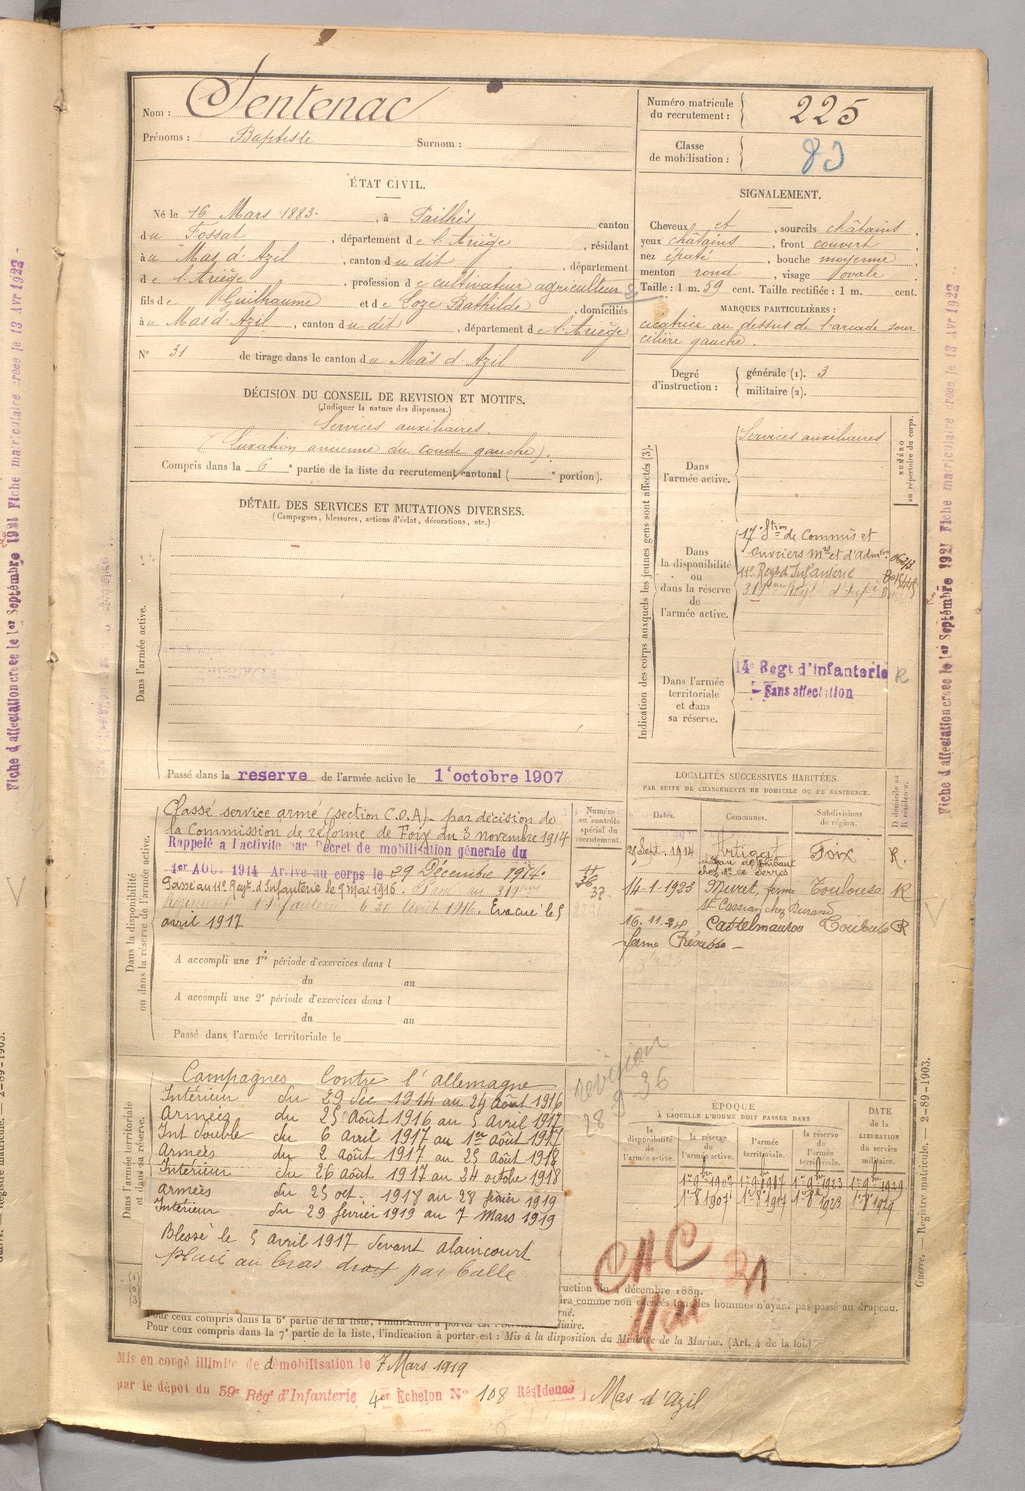 Nom : Sentenac
Prénoms : Baptiste Surnom :
Numéro matricule du recrutement : 225
Classe de mobilisation : 83
ÉTAT CIVIL.
Né le 16 Mars 1883. , à Pailhès canton
du Fossat , département de l'Ariège , résidant
à u Mas d'Azil , canton du dit , département
de l'Ariège , profession de cultivateur agriculteur
fils de Guilhaume et de Loze Bathilde , domiciliés
à u Mas d'Azil , canton du dit , département de l'Ariège
N° 31 de tirage dans le canton du Mas d'Azil
SIGNALEMENT.
Cheveux et , sourcils châtains ,
yeux châtains , front couvert ,
nez épaté , bouche moyenne ,
menton rond , visage ovale .
Taille : 1 m. 59 cent. Taille rectifiée : 1 m. cent.
MARQUES PARTICULIÈRES :
cicatrice au dessus de l'arcade sour
cilière gauche .
Degré d'instruction : générale (1). 3
militaire (2).
DÉCISION DU CONSEIL DE REVISION ET MOTIFS.
(Indiquer la nature des dispenses.)
Services auxiliaires
(Luxation ancienne du coude gauche).
Compris dans la 6e partie de la liste du recrutement cantonal ( e portion).
DÉTAIL DES SERVICES ET MUTATIONS DIVERSES.
(Campagnes, blessures, actions d'éclat, décorations, etc.)
Dans l'armée active.
Passé dans la reserve de l'armée active le 1er octobre 1907
Indication des corps auxquels les jeunes gens sont affectés (3).
NUMÉRO au répertoire du corps.
Dans l'armée active.
Services auxiliaires
Dans la disponibilité ou dans la réserve de l'armée active.
17e Stion de Commis et
Ouvriers Mres et d'admon
11e Regt d'Infanterie
Dans l'armée territoriale et dans sa réserve.
14e Regt d'Infanterie R
Sans affectation
Dans la disponibilité ou dans la réserve de l'armée active.
Classé service armé (section C.O.A) par décision de
la Commission de réforme de Foix du 3 novembre 1914
Rappelé à l'activité par Décret de mobilisation générale du
1er AOUT 1914 Arrivé au corps le 29 Décembre 1914.
Passé au 11e Regt d'Infanterie le 9 mai 1916. Passé au 319eme
Régiment d'Infanterie le 30 Août 1916. Evacué le 5
avril 1917
A accompli une 1re période d'exercices dans l
du au
A accompli une 2e période d'exercices dans l
du au
Passé dans l'armée territoriale le
Numéro au contrôle spécial du recrutement.
LOCALITÉS SUCCESSIVES HABITÉES
PAR SUITE DE CHANGEMENTS DE DOMICILE OU DE RÉSIDENCE.
Dates. Communes. Subdivisions de région. D domicile ou R résidence.
21 Sept. 1914 Artigat Foix R.
14-1-1923 Muret, ferme Toulouse R
St Cassian chez Durand
16.11.24 Castelmaurou Toulouse R
revision
28 9 36
Dans l'armée territoriale et dans sa réserve.
Campagnes Contre l'allemagne
Intérieur du 29 Dec 1914 au 24 Août 1916
Armées du 25 Août 1916 au 5 Avril 1917
Int double du 6 Avril 1917 au 1er Août 1917
Armées du 2 Août 1917 au 25 Août 1918
Intérieur du 26 Août 1917 au 24 octobre 1918
Armées du 25 oct. 1918 au 28 février 1919
Intérieur du 29 février 1919 au 7 Mars 1919
Blessé le 5 Avril 1917 devant alaincourt
plaie au bras droit par balle
ÉPOQUE
À LAQUELLE L'HOMME DOIT PASSER DANS
la disponibilité de l'armée active. la réserve de l'armée active. l'armée territoriale. la réserve de l'armée territoriale. DATE de la LIBÉRATION du service militaire.
1er 8bre 1907 1er 8bre 1917 1er 8bre 1923 1er 8bre 1929
CHC
21
décembre 1889.
comme non exercés tous les hommes n'ayant pas passé au drapeau.
Pour ceux compris dans la 6e partie de la liste, l'indication à porter
Pour ceux compris dans la 7e partie de la liste, l'indication à porter est : Mis à la disposition du Ministre de la Marine. (Art. 4 de la loi.)
Mis en congé illimité de démobilisation le 7 Mars 1919
par le dépôt du 59e Rég' d'Infanterie 4e Echelon N° 108 Résidence Mas d'Azil
Guerre. — Registre matricule. — 2-89-1903.
Fiche d'affectation créée le 1er Septembre 1921 Fiche matriculaire créée le 13 Avr 1922
Fiche d'affectation créée le 1er Septembre 1921 Fiche matriculaire créée le 13 Avr 1922